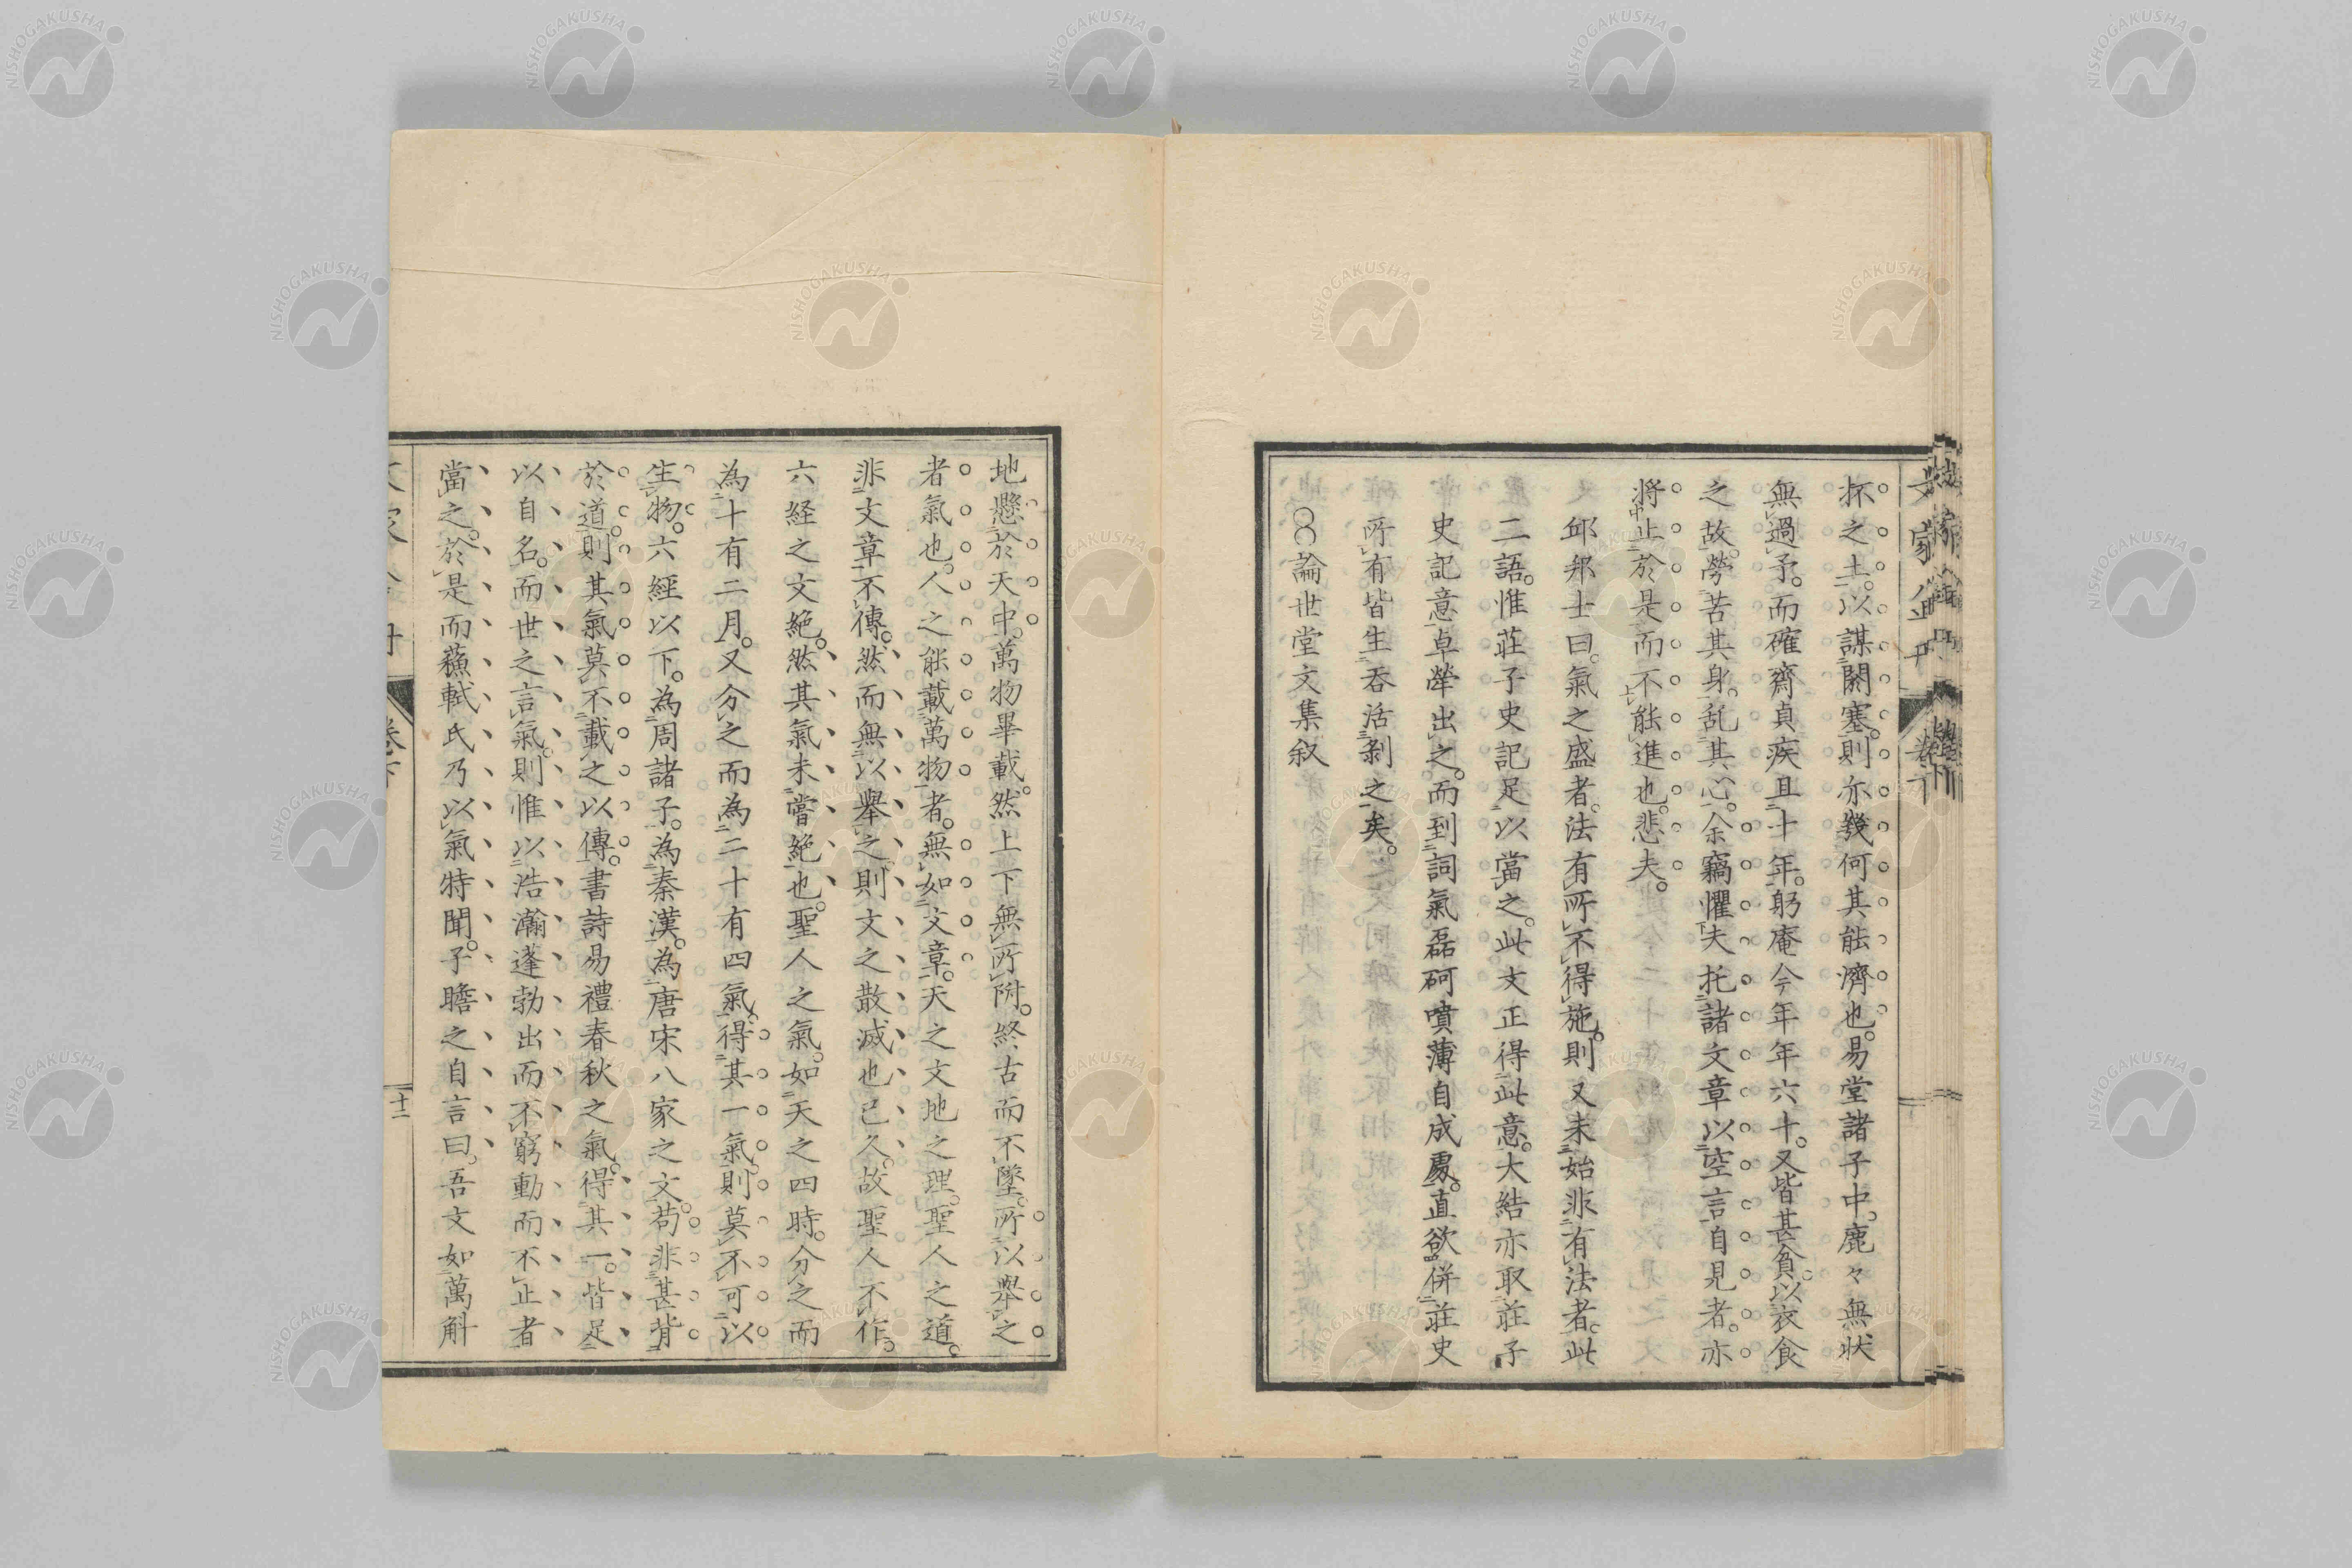 抔之土。以謀關塞。則亦幾何其能濟也。易堂諸子中。鹿々無狀
無過予。而確齋貞疾且十年。躬庵今年年六十。又皆甚貧。以衣食
之故。勞苦其身。乱其心。余竊懼夫托諸文章以空言自見者。亦
將止於是而不能進也。悲夫。
邱邦士曰。氣之盛者。法有所不得施。則又未始非有法者。此
二語。惟莊子史記足以當之。此文正得此意。大結亦取莊子
史記意卓犖出之。而到詞氣磊砢噴薄自成處。直欲併莊史
所有皆生吞活剝之矣。
論世堂文集叙
地懸於天中。萬物畢載。然上下無所附。終古而不墜。所以舉之
者氣也。人之能載萬物者。無如文章。天之文地之理。聖人之道。
非文章不傳。然而無以舉之。則文之散滅也已久。故聖人不作。
六経之文絶。然其氣未嘗絶也。聖人之氣。如天之四時。分之而
為十有二月。又分之而為二十有四氣。得其一氣。則莫不可以
生物。六經以下。為周諸子。為秦漢。為唐宋八家之文。苟非甚背
於道。則其氣莫不載之以傳。書詩易禮春秋之氣。得其一。皆足
以自名。而世之言氣。則惟以浩瀚蓬勃出而不窮動而不止者
當之。於是而蘇軾氏乃以氣特聞。子瞻之自言曰。吾文如萬斛
卷下
十二
NISHOGAKUSHA